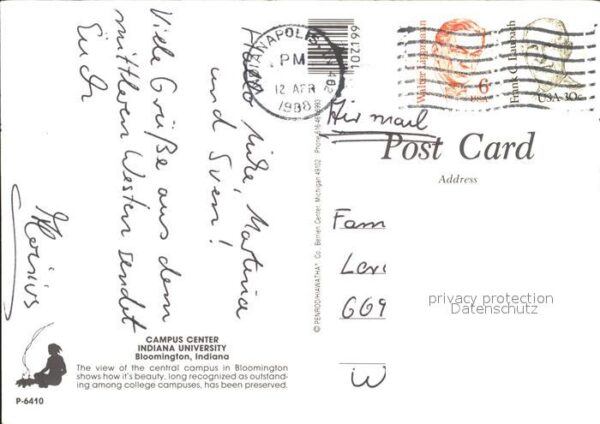 Hallo Silke, Martina
und Sven!
Viele Grüße aus dem
mittleren Westen sendet
Euch
CAMPUS CENTER
INDIANA UNIVERSITY
Bloomington, Indiana
The view of the central campus in Bloomington
shows how it's beauty, long recognized as outstand-
ing among college campuses, has been preserved.
P-6410
102199
NAPOLIS, IN 462
PM
12 APR
1988
Walter Lippmann
6c
USA
Frank C. Laubach
USA 30c
Air mail
Post Card
Address
Fam
669
W
privacy protection
Datenschutz
© PENROD/HIAWATHA Co. Berrien Center, Michigan 49102